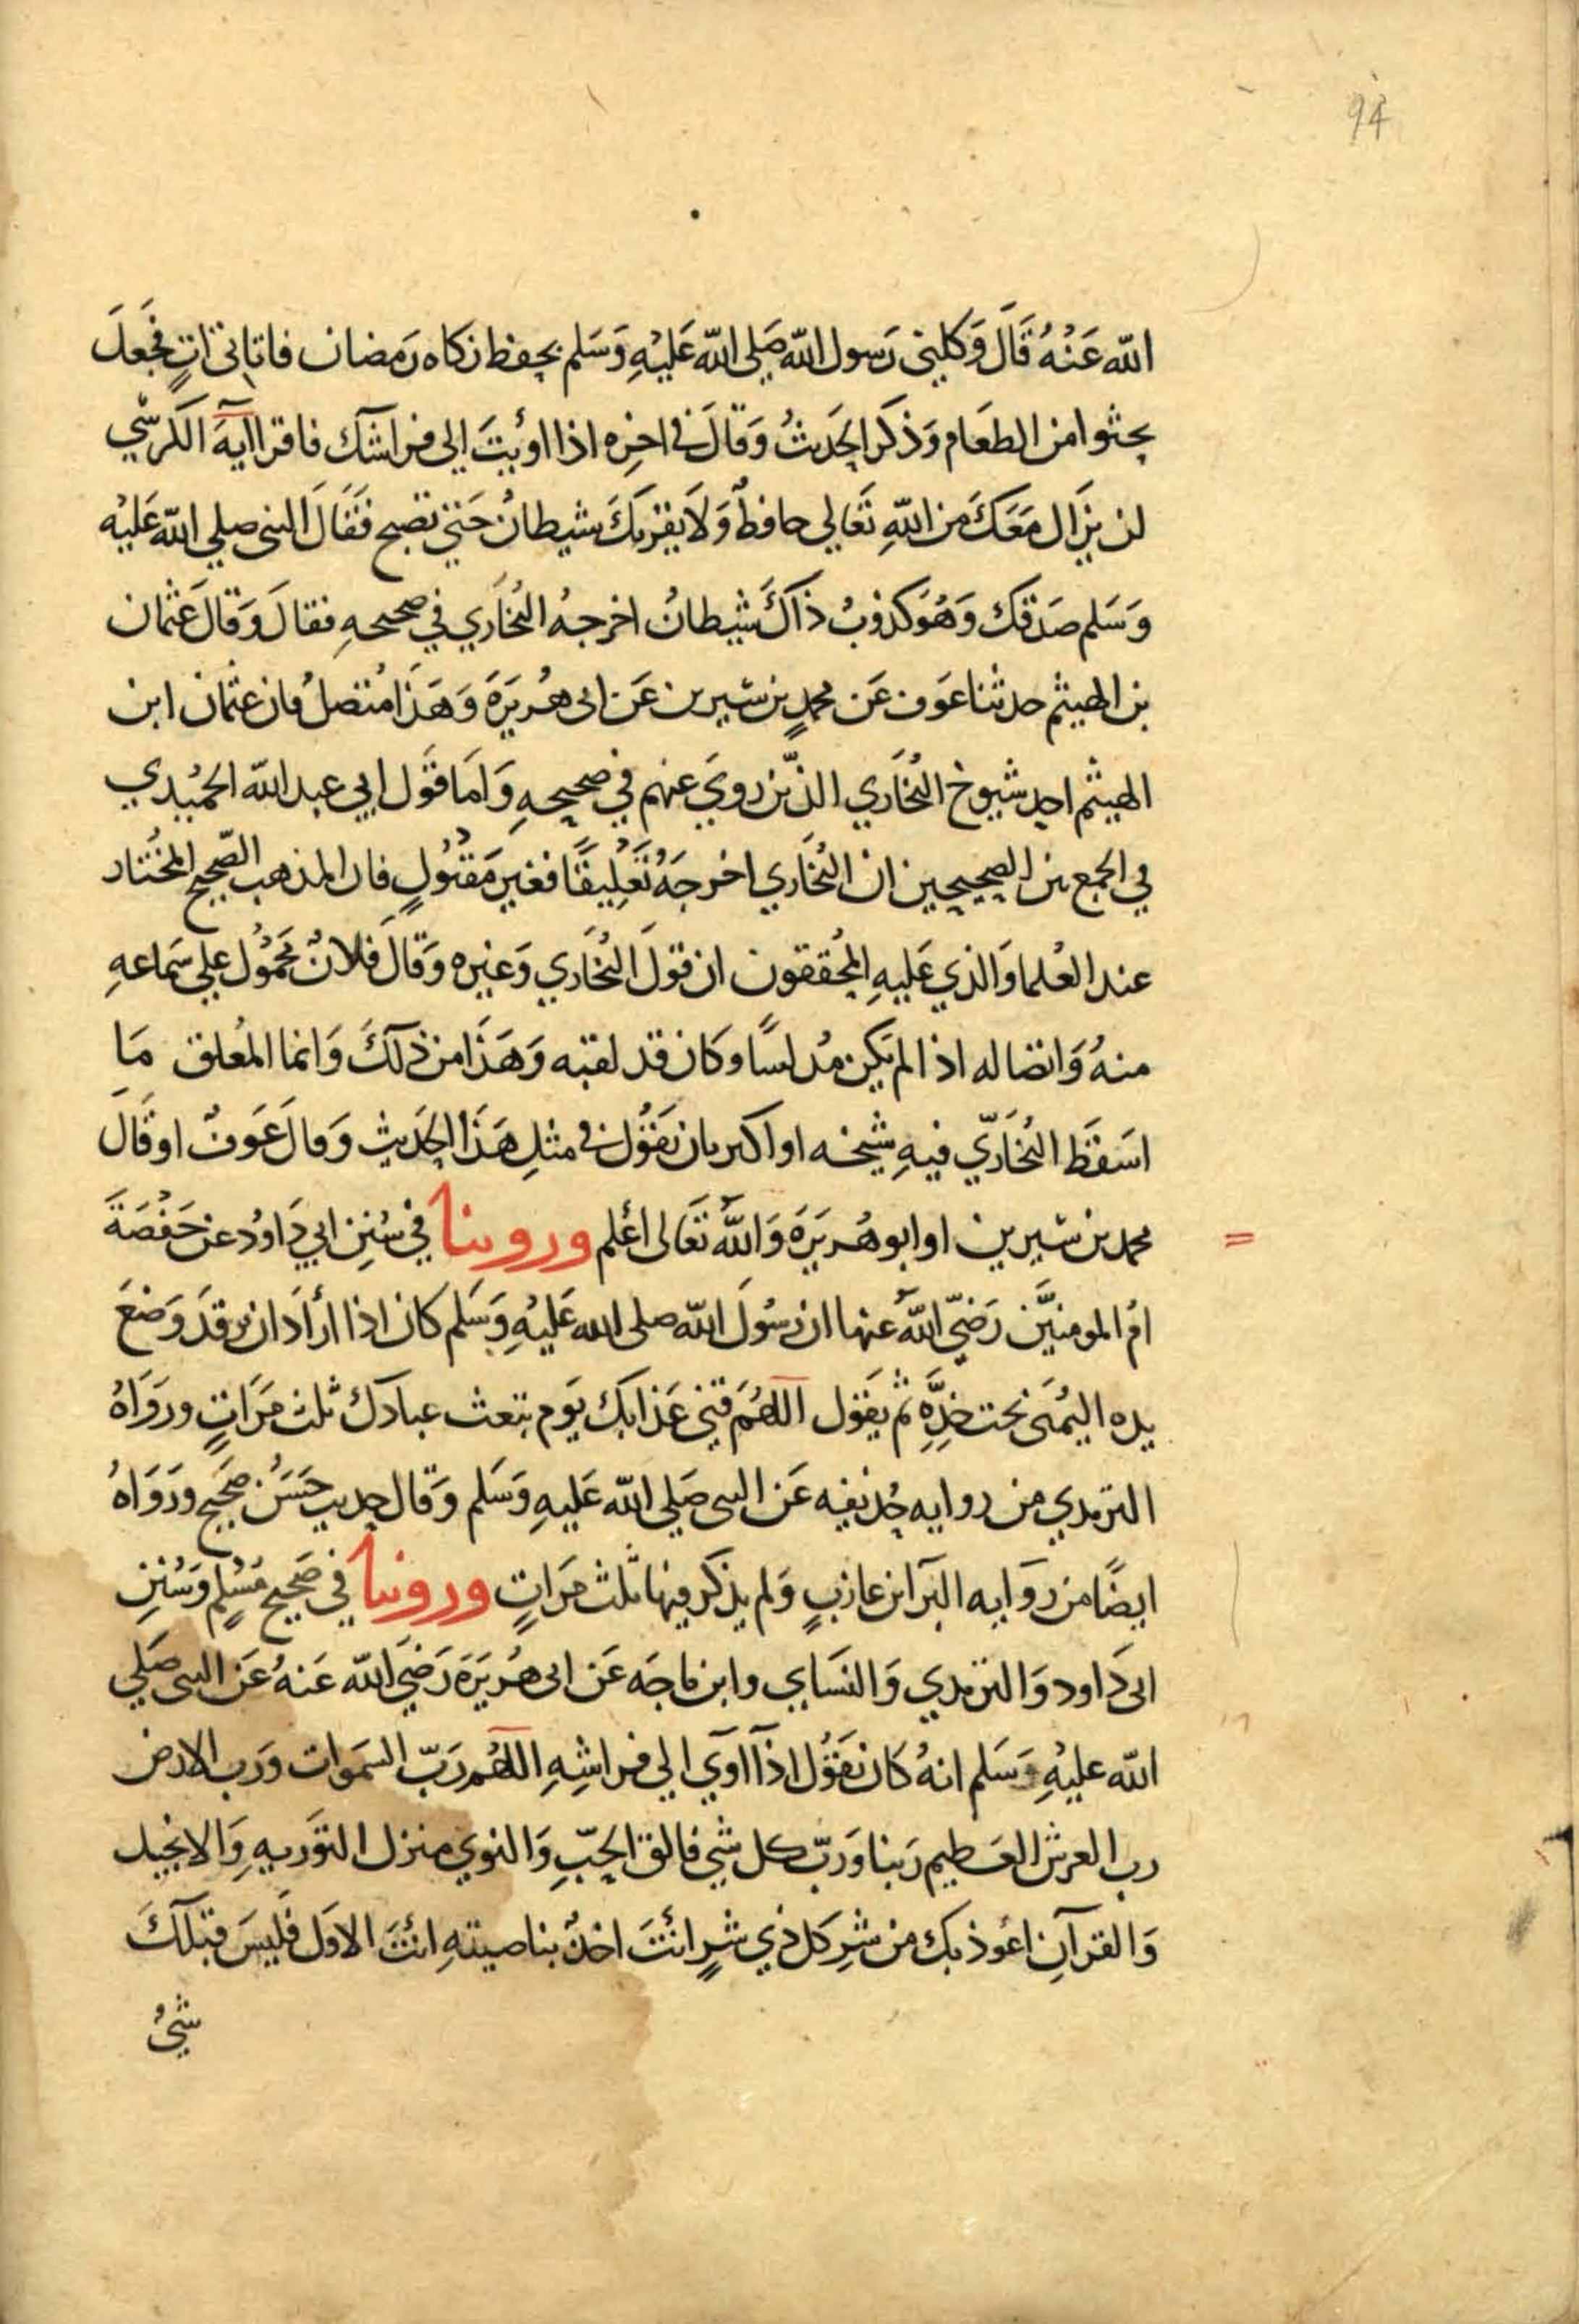 94
الله عَنْهُ قَالَ وَكلني رَسول الله صَلى الله عَليْهِ وَسَلم بحفظ زكاه رَمضان فاتاني اتٍ فجَعلَ
يحثوا من الطعَام وَذكر الحَديثُ وَقالَ في اخِره اذا اوَيتَ الى فراشك فاقرا ايهَ الكرسي
لن يزَال مَعَكَ من اللهِ تعَالي حافظٌ وَلاَ يقربكَ شيطانٌ حَتي تصبح فقَالَ النبي صلي الله عَليْه
وَسَلم صَدقكَ وَهُوَ كذوبٌ ذاكَ شيطانٌ اخرجهُ البُخَاري في صحيحهِ فقالَ وَقالَ عثمان
بن الهيثم حدثنا عَوف عَن محمدٍ بن سيرين عَن ابي هُريَرَةَ وَهَذا مُتصلٌ فان عثمان ابن
الهيثم احد شيوخ البُخَاري الذين رويَ عنهم في صحيحهِ وَامَا قَول ابي عبد الله الحُميْدي
في الجمع بين الصحيحين ان البُخَاري اخرجَهُ تَعْلِيقًا فغير مَقبُولٍ فان المذهب الصّحيح المخُتار
عند العُلما وَالذي عَليهِ المُحققون ان قولَ البُخَاري وَغيره وَقالَ فلانٌ مَحْمُول علي سَماعهِ
منهُ وَاتصاله اذا لم يَكن مُدلسًا وكان قد لقيه وَهَذَا من ذلكَ وَانما المُعلق مَا
اسَقَطَ البُخَاريّ فيهِ شيخه او اكثر بان يَقوُل في مثلِ هَذَا الحَديثِ وَقالَ عَوفٌ او قَالَ
محمد بن سيرين او ابو هُريَرَةَ وَاللهُ تعَالى أعْلم وروينا في سُننِ ابي دَاودُ عن حَفْصَةَ
امُ المومنيَن رَضيَ اللهُ عنها ان رَسُولَ الله صلى الله عَليْهِ وَسَلم كان اذا أرَادَ ان يرقدَ وَضعَ
يده اليُمَنى تحت خدِّهِ ثم يَقول اللهُمَ قني عَذابكَ يَوم تبعث عبادكَ ثلث مَرَاتٍ ورَوَاهُ
الترمدي من روايه حُذيفه عَن النبي صَلي الله عَليهِ وَسَلم وَقال حديث حَسَنٌ صَحيح ورَوَاهُ
ايضًا من رِوَايه البَرَا بن عازبٍ وَلم يذكر فيها ثلث مرَاتٍ وروينا في صَحيح مُسْلم وَسُننِ
ابي دَاود وَالترمدي وَالنسَاي وابن مَاجَه عَن ابى هُريَرَة رَضيَ الله عَنهُ عَن النبي صَلي
الله عليْهِ وَسَلم انهُ كَان يَقوُل اذَا اوَي الي فراشِهِ اللهُم رَبّ السمَوات وَرَب الارض
رب العرش العَظيم رَبنا وَرَبّ كل شي فالق الحَبّ وَالنوي منزل التوَريهِ وَالانجيل
وَالقرآنِ اعُوذ بكَ من شرِ كل ذي شرٍ انتَ اخذٌ بناصيتهِ انتَ الاوَل فَليسَ قبلكَ
شيٌ